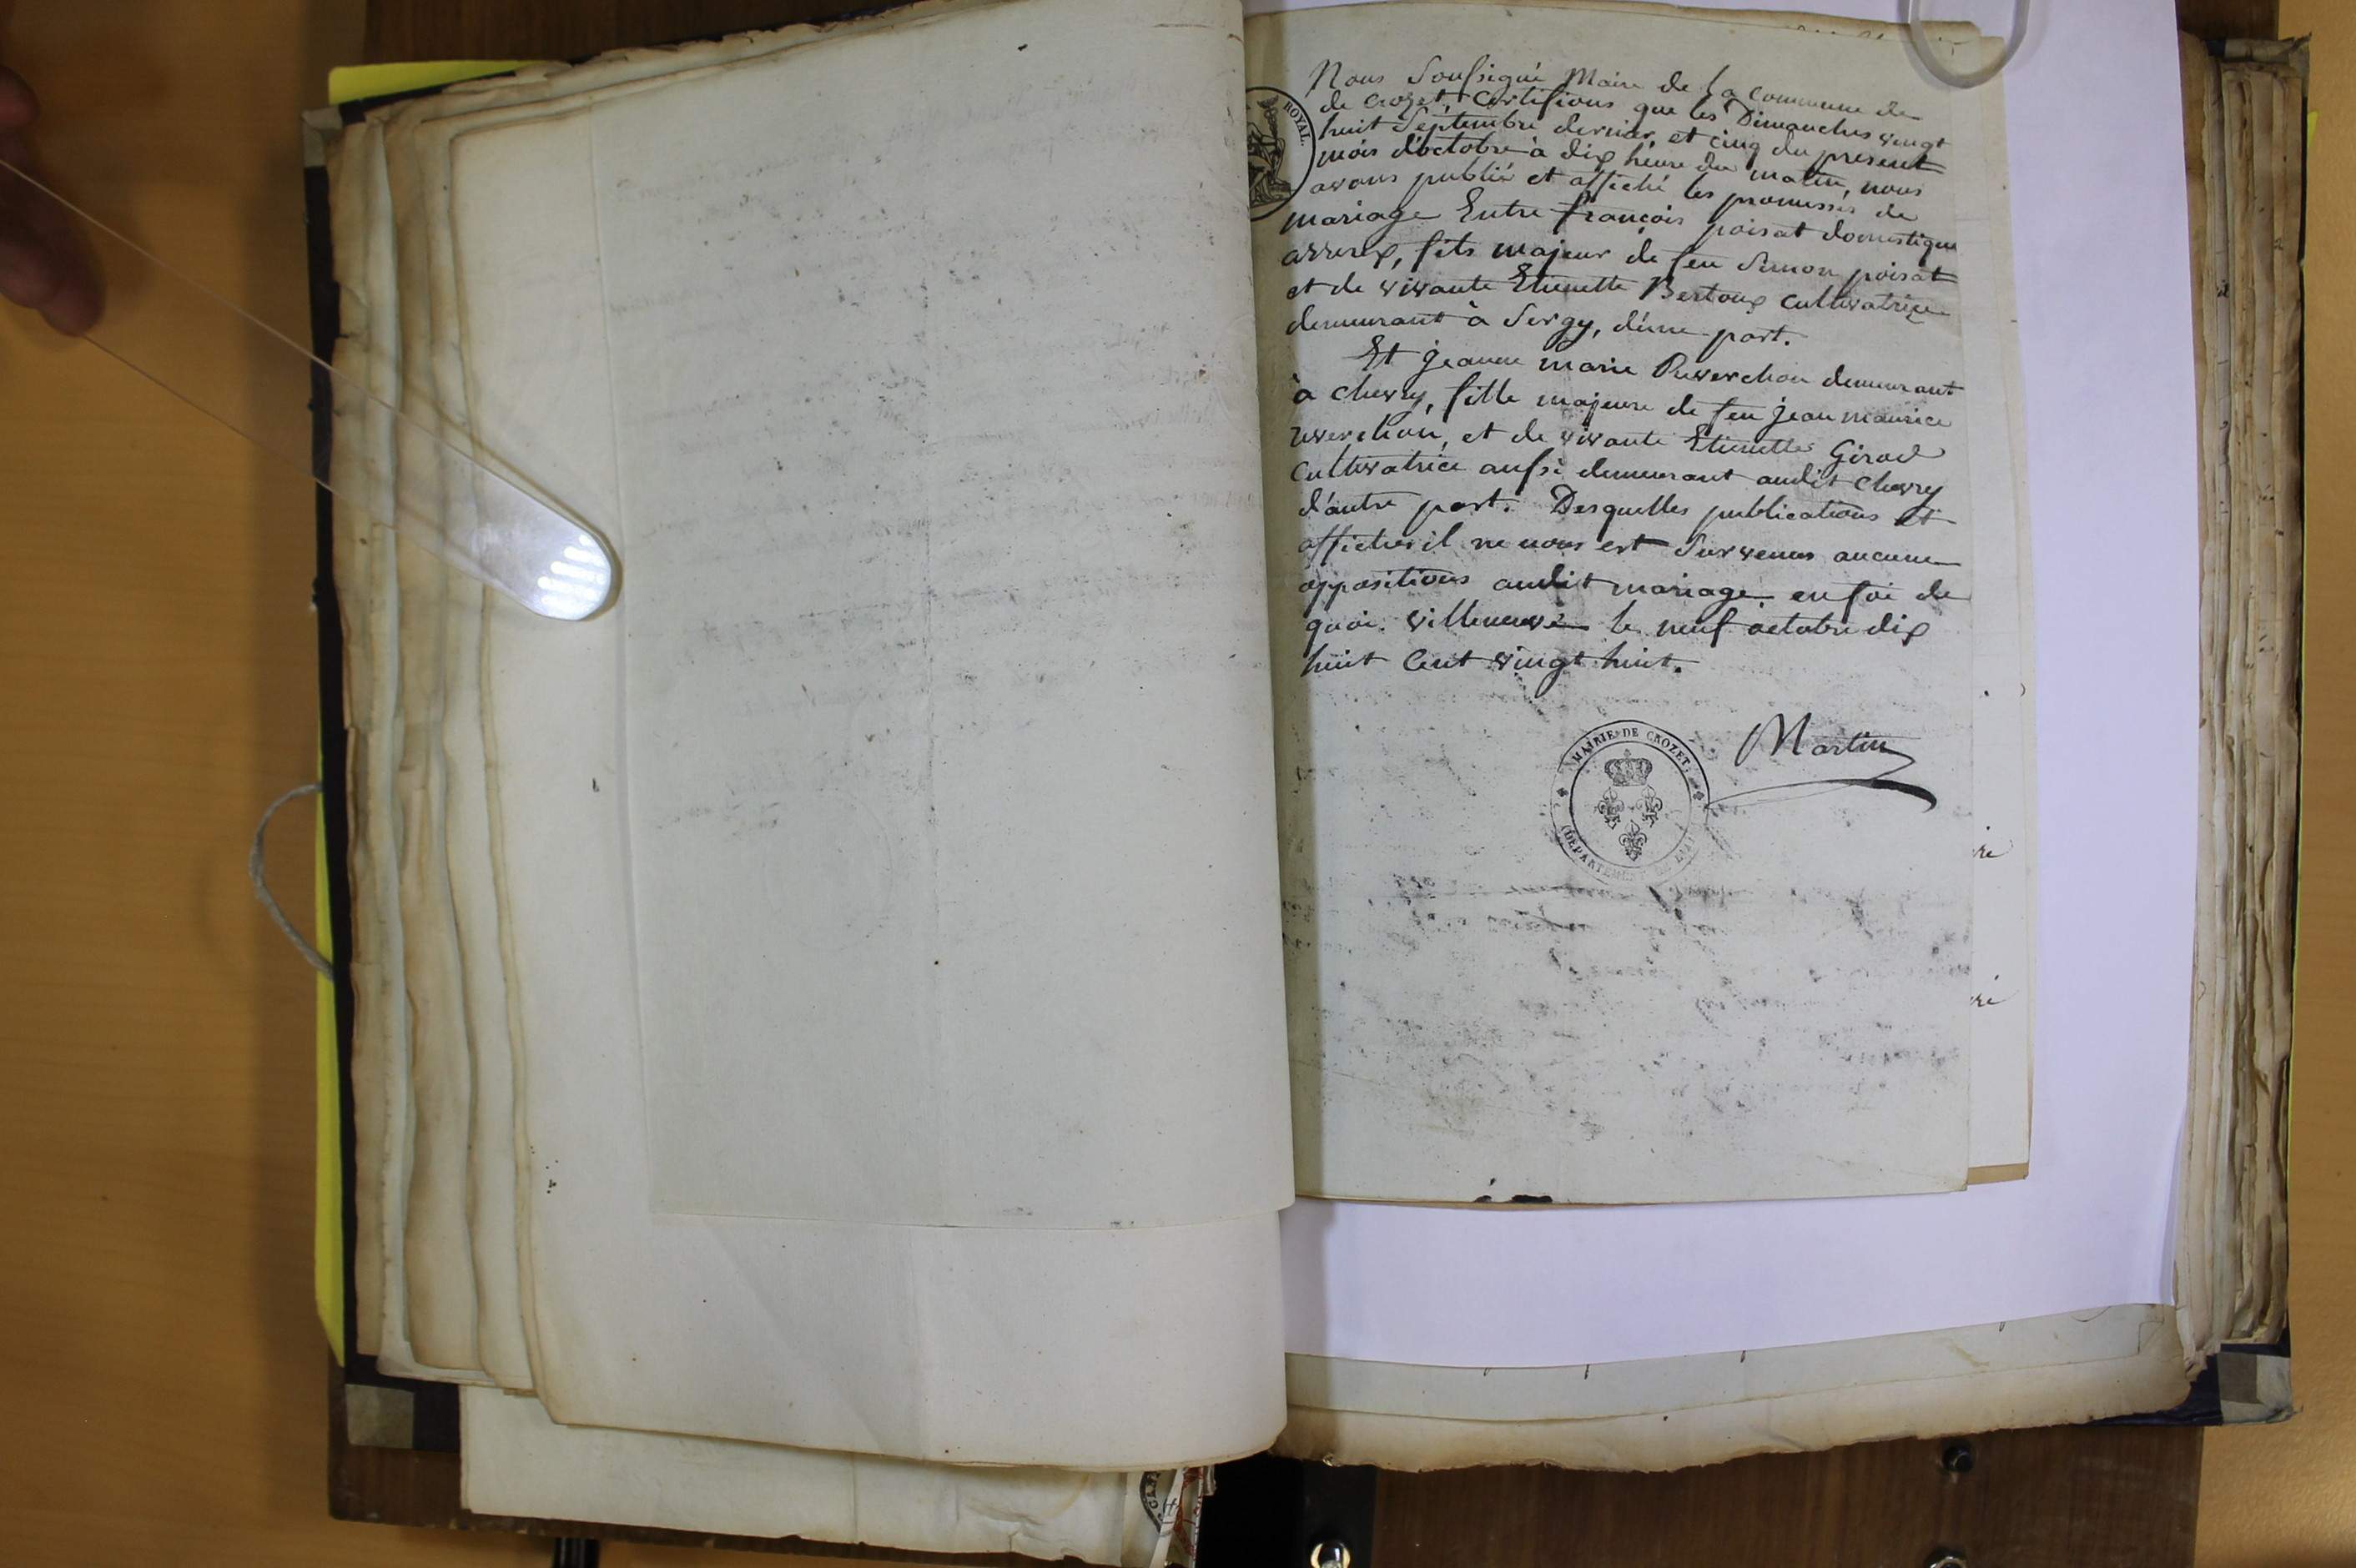 Nous Soussigné Maire de La commune de
de Crozet, Certifions que les Dimanches vingt
huit Septembre dernier et cinq du present
mois d'octobre à dix heure du matin, nous
avons publié et affiché les promesses de
mariage Entre françois poisat domestique
fils majeur de feu Simon poisat
et de vivante Etienette Bertoux cultivatrice
demeurant à Sergy, d'une part.
Et jeanne marie Reverchon demeurant
à Chevry, fille majeure de feu jean maurice
reverchon, et de vivante Etienette Girod
Cultivatrice aussi demeurant audit Chevry
d'autre part. Desquelles publications et
affiches il ne nous est Survenus aucune
oppositions audit mariage en foi de
quoi. villeneuve le neuf octobre dix
huit Cent vingt huit.
Martin
MAIRIE DE CROZET
DÉPARTEMENT
ROYAL.